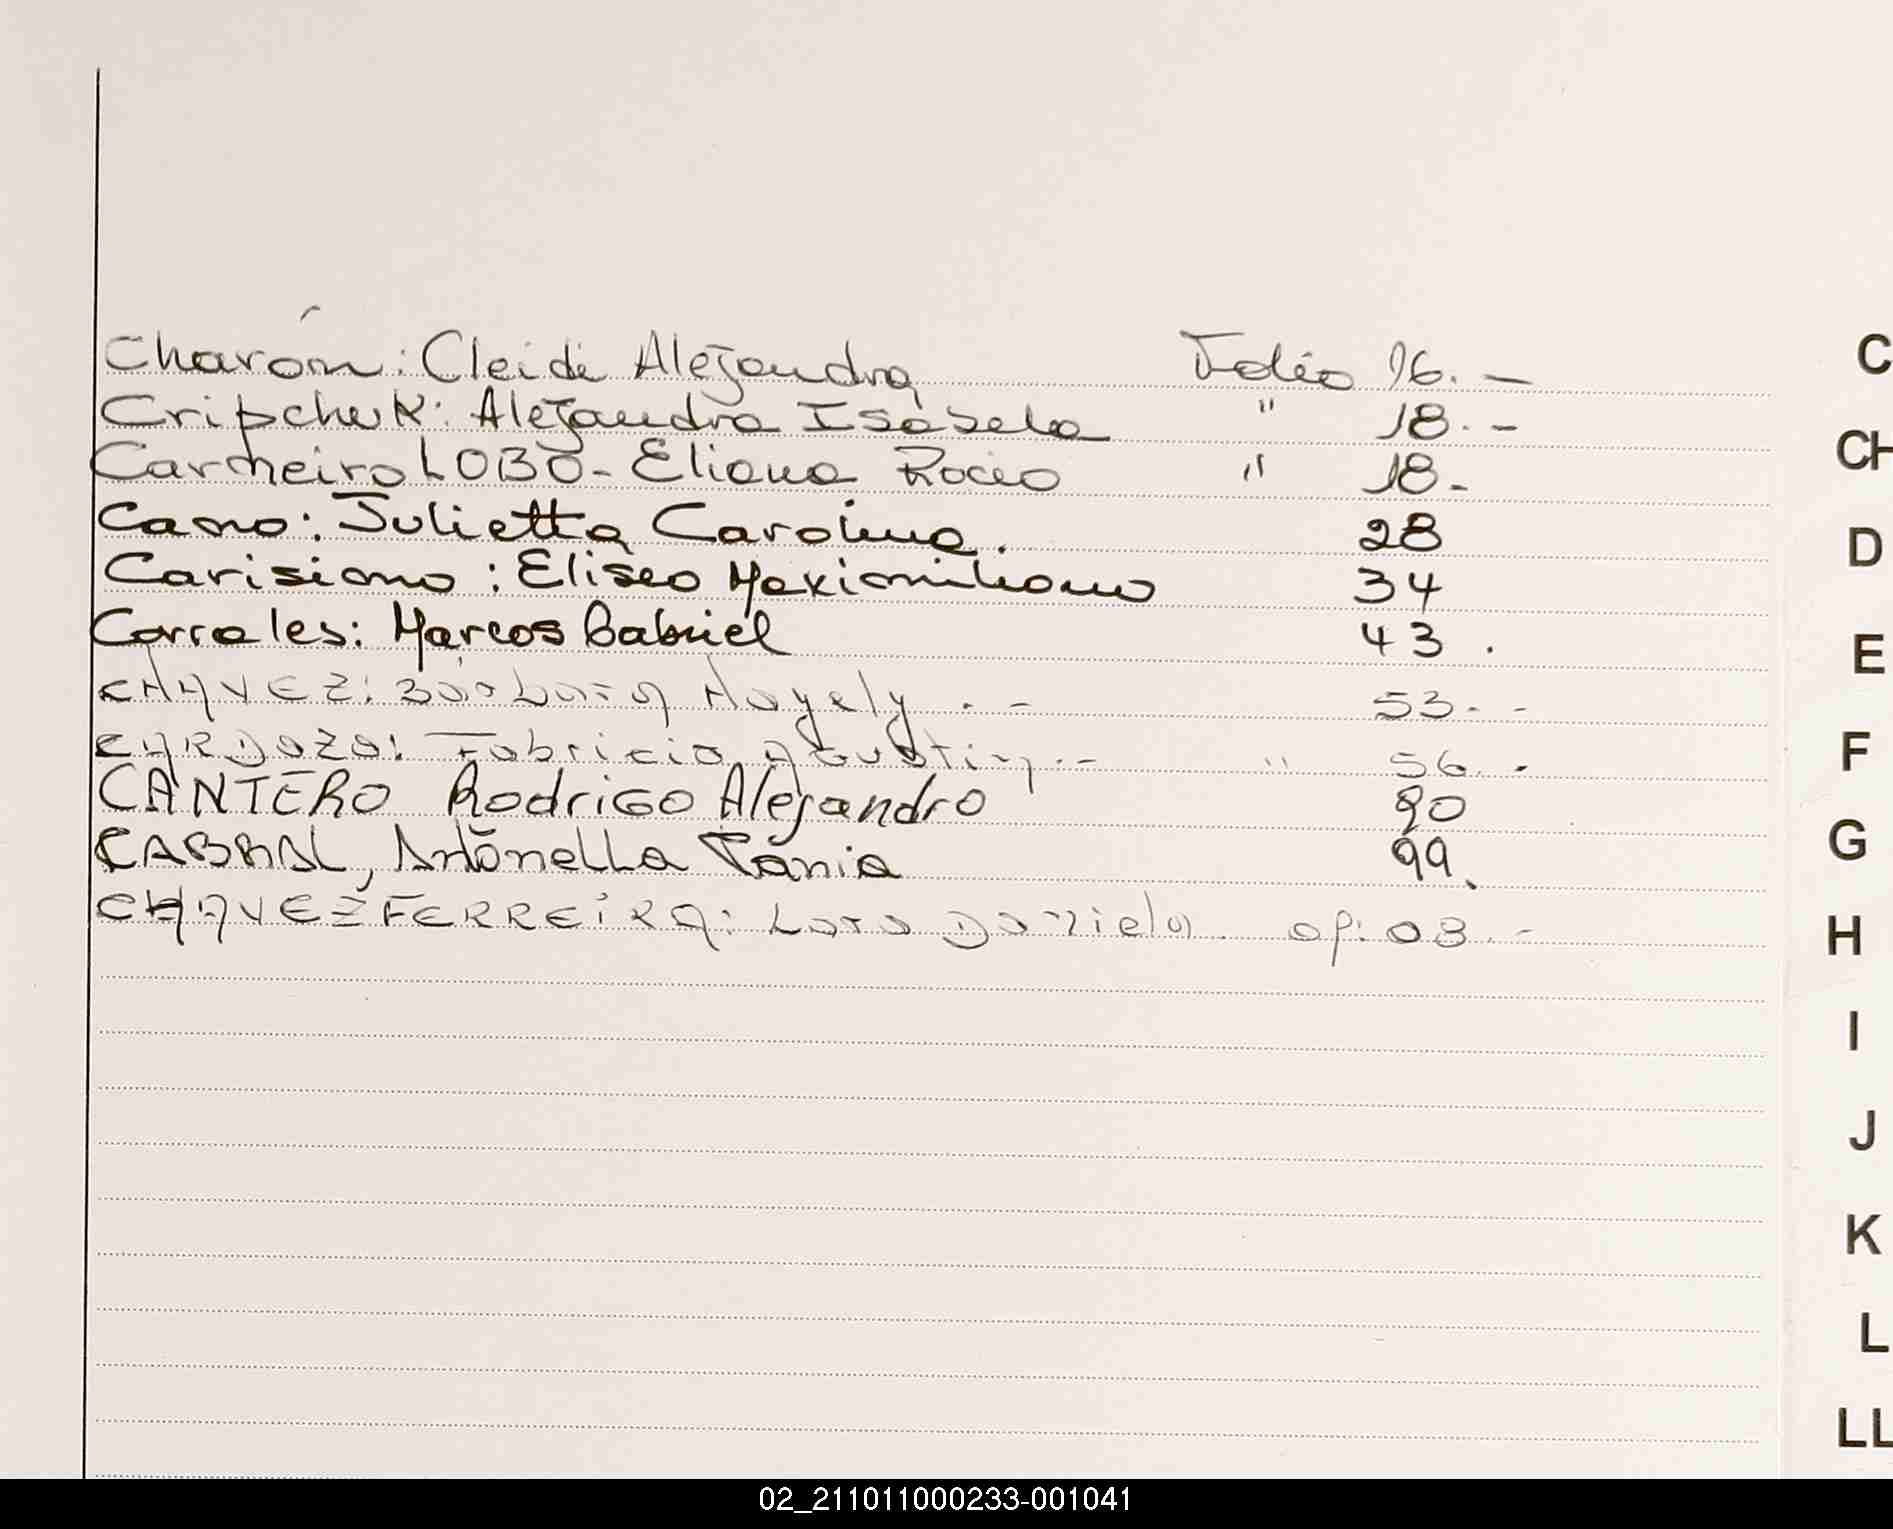 Charón: Cleidi Alejandra Folio 16. -
Cripchuk: Alejandra Isabela " 18. -
Carneiro LOBO - Eliana Rocío " 18 -
Cano: Julietta Carolina. 28
Carisimo: Eliseo Maximiliano 34
Corrales: Marcos Gabriel 43.
CHAVEZ: Bárbara Nayely. - 53. -
CARDOZO: Fabricio Agustin. - " 56. -
CANTERO Rodrigo Alejandro 90
CABRAL, Antonella Tania 99.
CHAVEZ FERREIRA: Lara Daniela op: 03. -
C
CH
D
E
F
G
H
I
J
K
L
LL
02_211011000233-001041